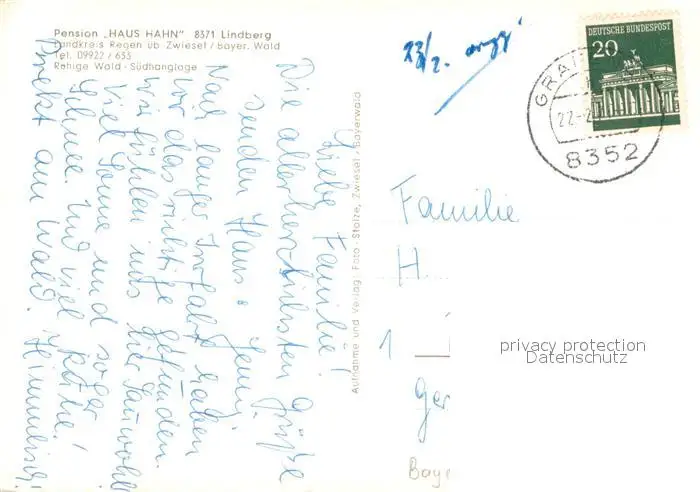 Pension „HAUS HAHN" 8371 Lindberg
Landkreis Regen üb. Zwiesel / Bayer. Wald
Tel. 09922 / 653
Ruhige Wald - Südhanglage
Liebe Familie!
Die allerherzlichsten Grüße
senden Hans u. Jenny.
Nach langer Irrfahrt haben
wir das richtige gefunden.
Wir fühlen uns hier sauwohl.
Viel Sonne und sogar
Schnee. Und viel Kälte!
Direkt am Wald. Himmlisch!
Aufnahme und Verlag: Foto - Stolze, Zwiesel / Bayerwald
23/2.
DEUTSCHE BUNDESPOST
20
GRA
22.-2
8352
Familie
H
1
Ger
Baye
privacy protection
Datenschutz